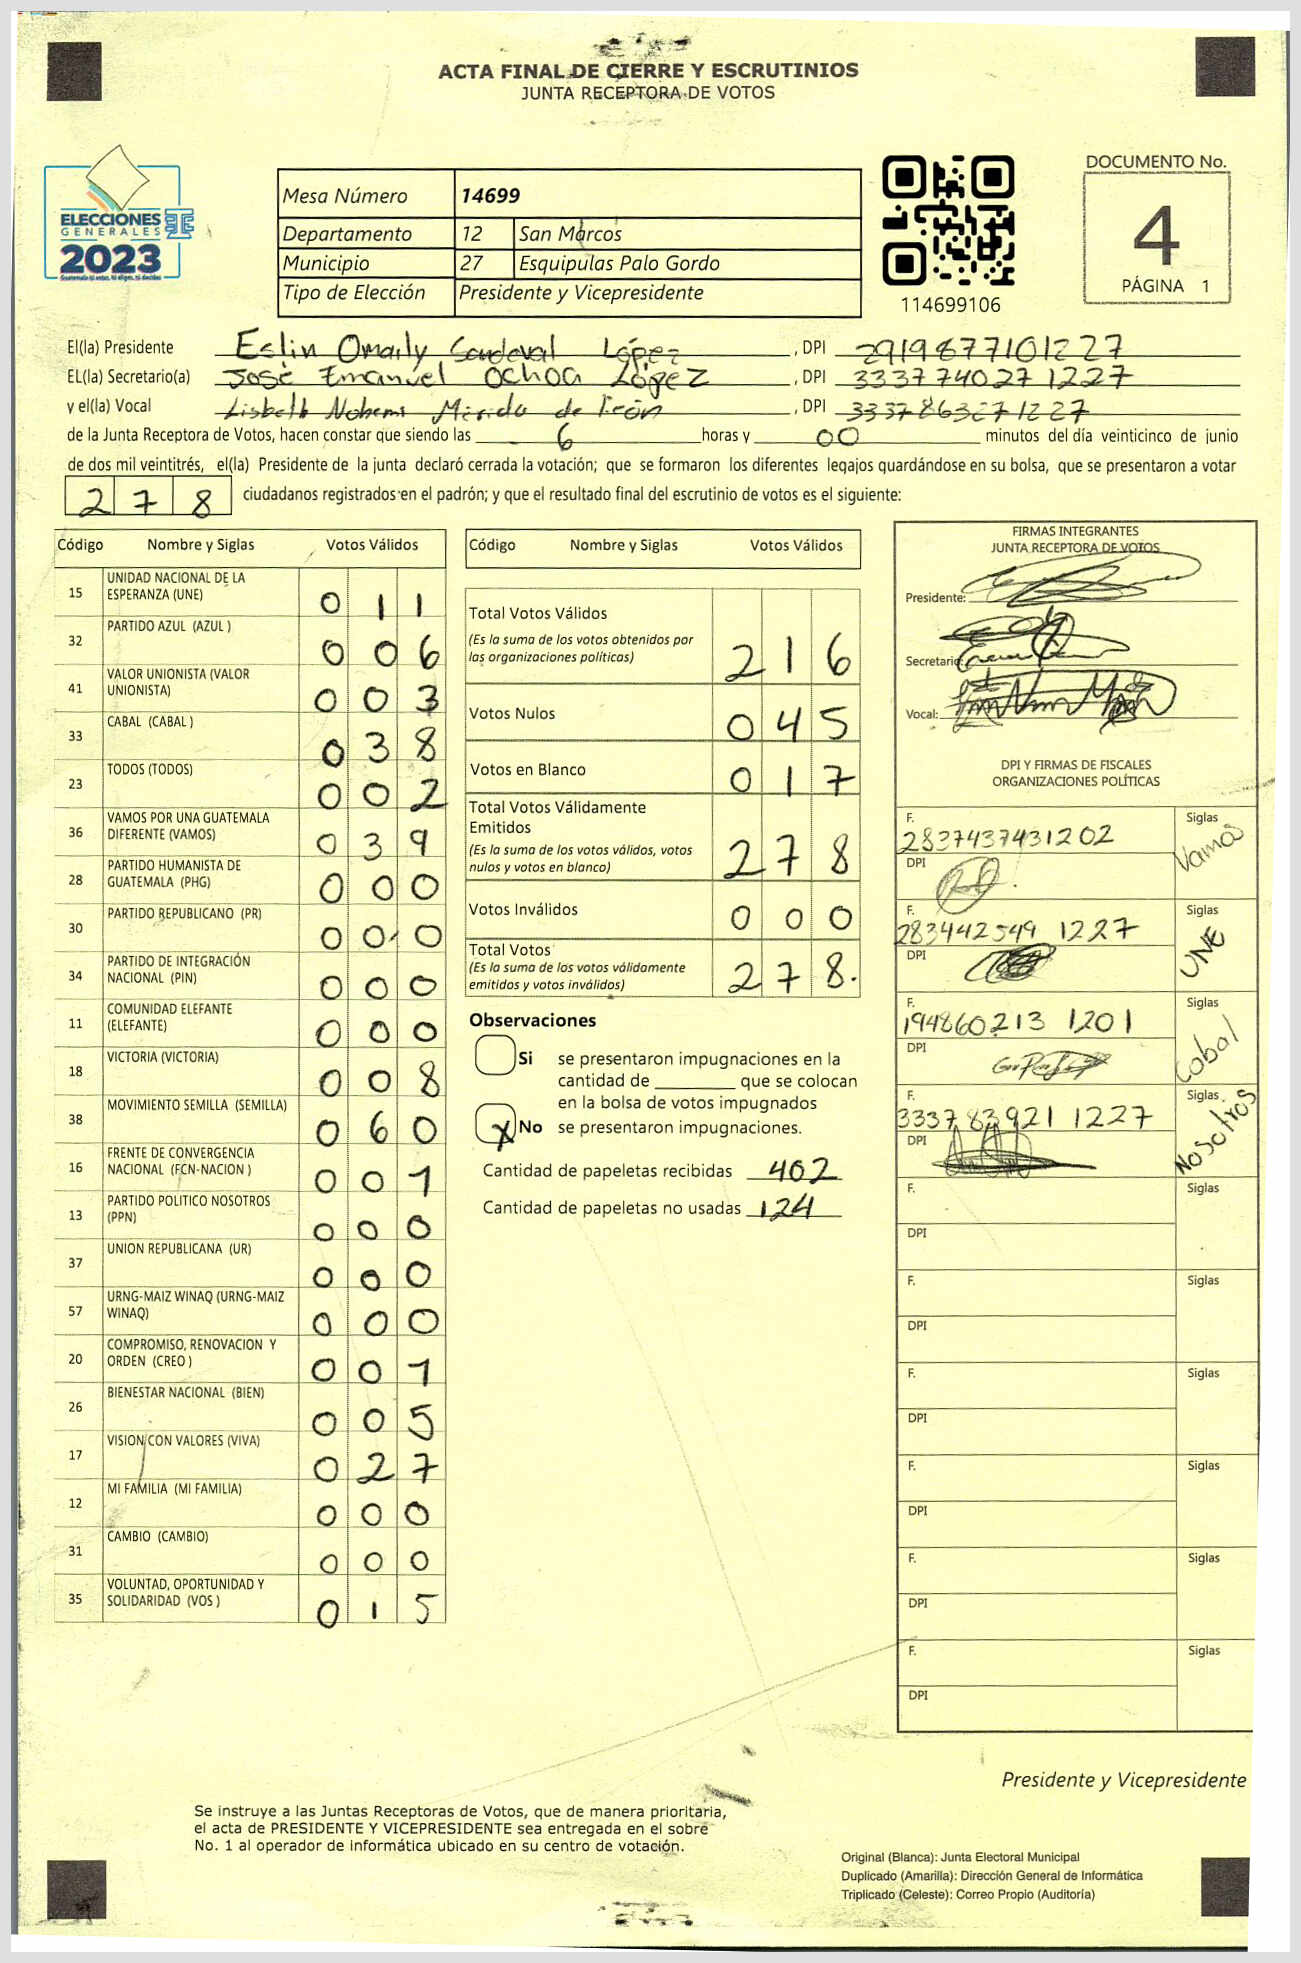 ACTA FINAL DE CIERRE Y ESCRUTINIOS
JUNTA RECEPTORA DE VOTOS
ELECCIONES
GENERALES
2023
Mesa Número 14699
Departamento 12 San Marcos
Municipio 27 Esquipulas Palo Gordo
Tipo de Elección Presidente y Vicepresidente
114699106
DOCUMENTO No.
4
PÁGINA 1
El(la) Presidente Eslin Omaily Sandoval López, DPI 2919877101227
EL(la) Secretario(a) José Emanuel Ochoa López, DPI 3337740271227
y el(la) Vocal Lisbeth Nohemi Mérida de león, DPI 3337863271227
de la Junta Receptora de Votos, hacen constar que siendo las 6 horas y 00 minutos del día veinticinco de junio
de dos mil veintitrés, el(la) Presidente de la junta declaró cerrada la votación; que se formaron los diferentes legajos quardándose en su bolsa, que se presentaron a votar
278 ciudadanos registrados en el padrón; y que el resultado final del escrutinio de votos es el siguiente:
Código Nombre y Siglas Votos Válidos
15 UNIDAD NACIONAL DE LA ESPERANZA (UNE) 0 1 1
32 PARTIDO AZUL (AZUL ) 0 0 6
41 VALOR UNIONISTA (VALOR UNIONISTA) 0 0 3
33 CABAL (CABAL ) 0 3 8
23 TODOS (TODOS) 0 0 2
36 VAMOS POR UNA GUATEMALA DIFERENTE (VAMOS) 0 3 9
28 PARTIDO HUMANISTA DE GUATEMALA (PHG) 0 0 0
30 PARTIDO REPUBLICANO (PR) 0 0 0
34 PARTIDO DE INTEGRACIÓN NACIONAL (PIN) 0 0 0
11 COMUNIDAD ELEFANTE (ELEFANTE) 0 0 0
18 VICTORIA (VICTORIA) 0 0 8
38 MOVIMIENTO SEMILLA (SEMILLA) 0 6 0
16 FRENTE DE CONVERGENCIA NACIONAL (FCN-NACION ) 0 0 1
13 PARTIDO POLITICO NOSOTROS (PPN) 0 0 0
37 UNION REPUBLICANA (UR) 0 0 0
57 URNG-MAIZ WINAQ (URNG-MAIZ WINAQ) 0 0 0
20 COMPROMISO, RENOVACION Y ORDEN (CREO ) 0 0 1
26 BIENESTAR NACIONAL (BIEN) 0 0 5
17 VISION CON VALORES (VIVA) 0 2 7
12 MI FAMILIA (MI FAMILIA) 0 0 0
31 CAMBIO (CAMBIO) 0 0 0
35 VOLUNTAD, OPORTUNIDAD Y SOLIDARIDAD (VOS ) 0 1 5
Código Nombre y Siglas Votos Válidos
Total Votos Válidos 2 1 6
(Es la suma de los votos obtenidos por
las organizaciones políticas)
Votos Nulos 0 4 5
Votos en Blanco 0 1 7
Total Votos Válidamente
Emitidos 2 7 8
(Es la suma de los votos válidos, votos
nulos y votos en blanco)
Votos Inválidos 0 0 0
Total Votos 2 7 8.
(Es la suma de los votos válidamente
emitidos y votos inválidos)
Observaciones
Si se presentaron impugnaciones en la
cantidad de ________ que se colocan
en la bolsa de votos impugnados
X No se presentaron impugnaciones.
Cantidad de papeletas recibidas 402
Cantidad de papeletas no usadas 124
FIRMAS INTEGRANTES
JUNTA RECEPTORA DE VOTOS
Presidente:
Secretario:
Vocal:
DPI Y FIRMAS DE FISCALES
ORGANIZACIONES POLÍTICAS
F. 2837437431202 Siglas Vamos
DPI
F. 283442549 1227 Siglas UNE
DPI
F. 194860213 1201 Siglas Cabal
DPI
F. 3337839211227 Siglas Nosotros
DPI
F. Siglas
DPI
F. Siglas
DPI
F. Siglas
DPI
F. Siglas
DPI
F. Siglas
DPI
F. Siglas
DPI
Presidente y Vicepresidente
Se instruye a las Juntas Receptoras de Votos, que de manera prioritaria,
el acta de PRESIDENTE Y VICEPRESIDENTE sea entregada en el sobre
No. 1 al operador de informática ubicado en su centro de votación.
Original (Blanca): Junta Electoral Municipal
Duplicado (Amarilla): Dirección General de Informática
Triplicado (Celeste): Correo Propio (Auditoría)